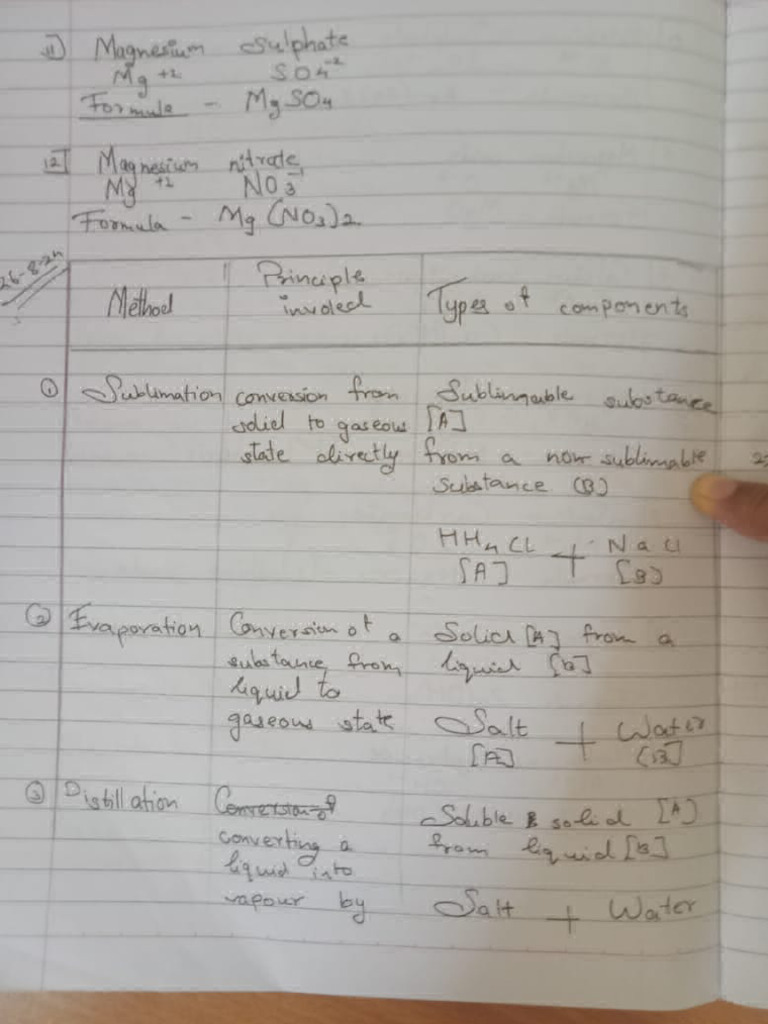 11] Magnesium Sulphate
Mg +2 SO4 -2
Formula - MgSO4
12] Magnesium nitrate
Mg +2 NO3 -1
Formula - Mg (NO3)2
26-8-24
Method Principle involed Types of components
① Sublimation conversion from Sublimable substance
solid to gaseous [A]
state directly from a non sublimable
Substance (B)
HH4 Cl + NaCl
[A] [B]
② Evaporation Conversion of a Solid [A] from a
substance from liquid [B]
liquid to
gaseous state Salt + Water
[A] [B]
③ Distillation Conversion of Soluble solid [A]
converting a from liquid [B]
liquid into
vapour by Salt + Water